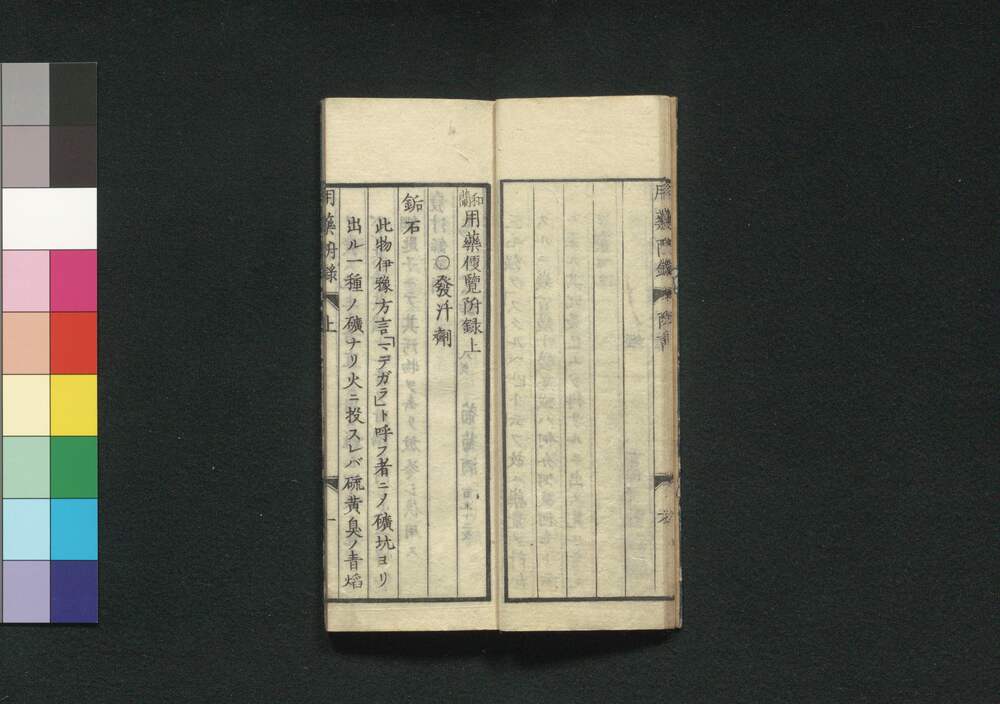 用藥附錄
和蘭用藥便覽附録上
○發汗劑
鉐石
此物伊豫方言「マデガラ」ト呼フ者ニノ礦坑ヨリ
出ル一種ノ礦ナリ火ニ投スレバ硫黄臭ノ青焰
用藥附録 上 一